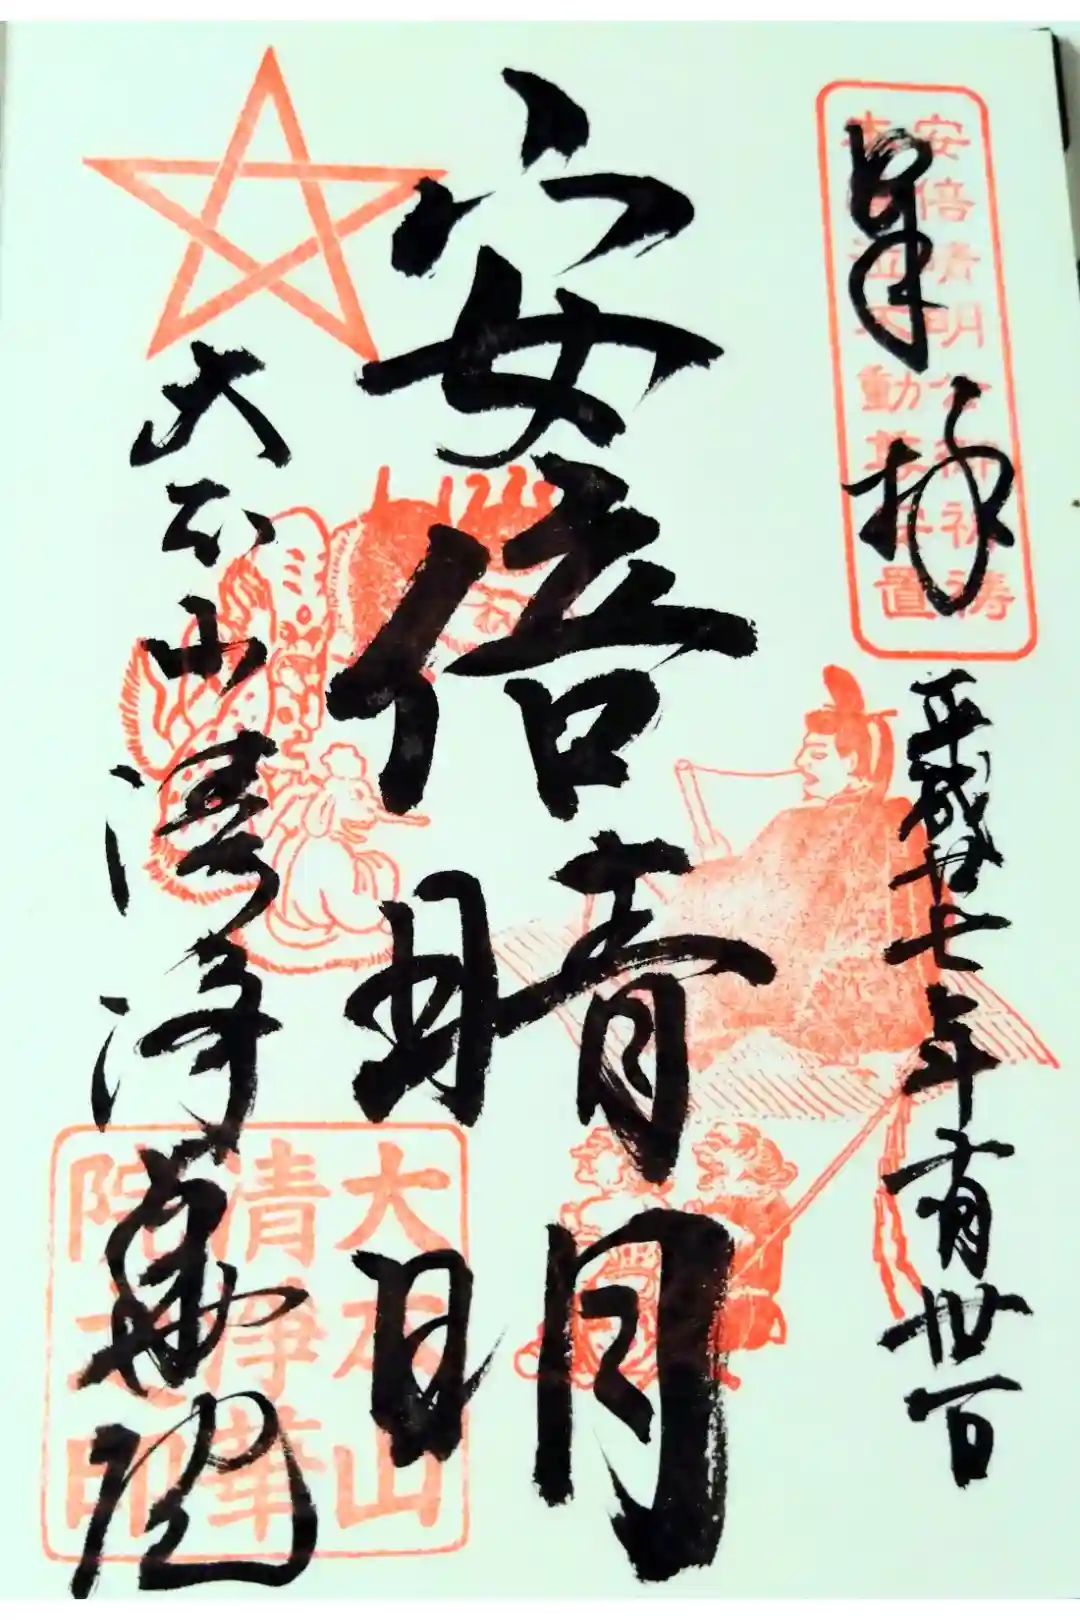 奉拝
安倍晴明公御祈祷
動
置
平成廿七年
安倍晴明
大本山清浄華院
大本山
清浄華
院之印